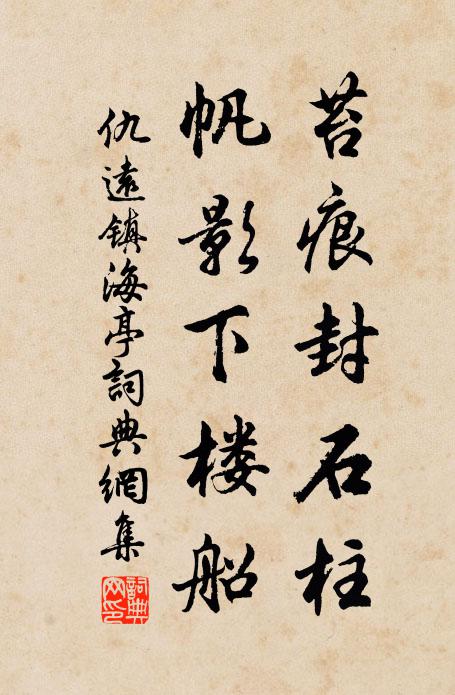 苔痕封石柱
帆影下楼船
仇遠鎮海亭詞典網集
詞典网印